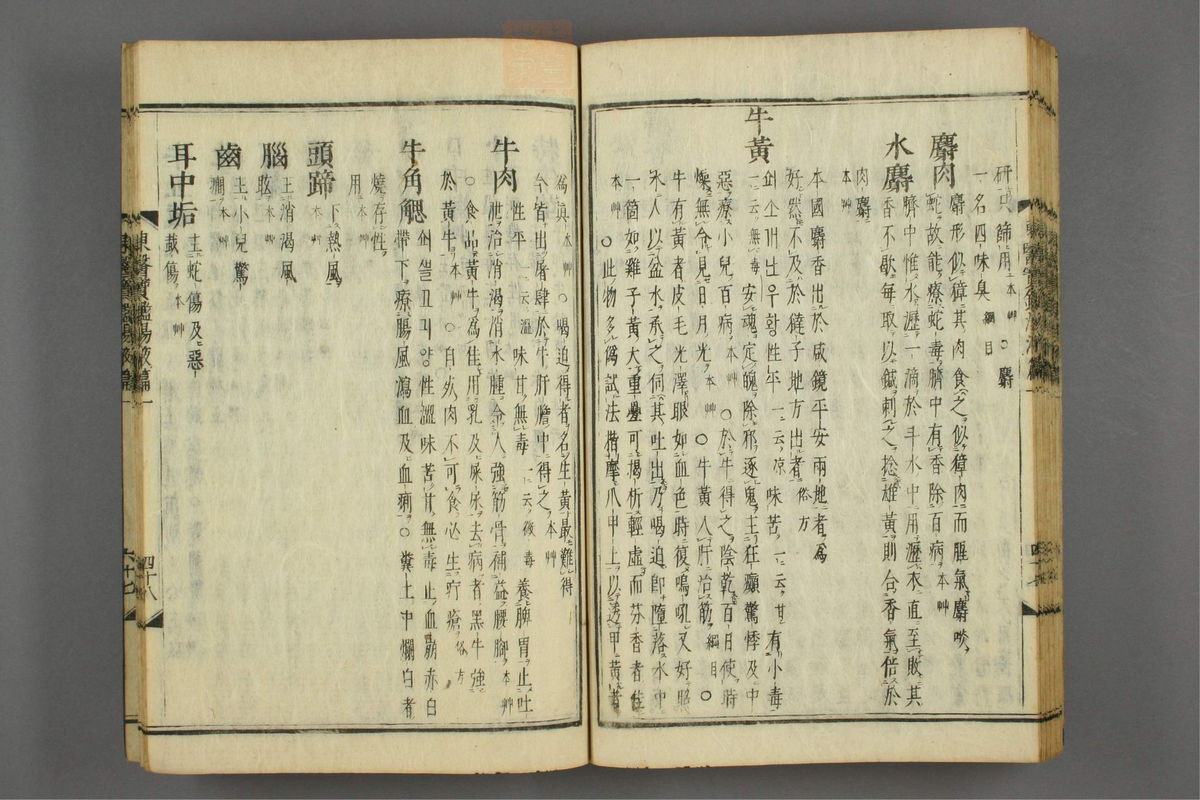 硏只篩用本艸○麝
一名四味臭綱目
麝肉
麝形似獐其肉食之似獐肉而腥氣麝啖
蛇故能療蛇毒臍中有香除百病本艸
水麝
臍中惟水瀝一滴於斗水中用瀝衣直至敗其
香不歇每取以鍼刺之捻雄黃則合香氣倍於
肉麝本艸
本國麝香出於咸鏡平安兩地者爲
好然不及於㺚子地方出者俗方
牛黃
쇠소개난우황性平一云凉味苦一云甘有小毒
一云無毒安魂定魄除邪逐鬼主狂癲驚悸及中
惡療小兒百病本艸○於牛得之陰乾百日使時
燥無令見日月光本艸○牛黃入肝治筋綱目○
牛有黃者皮毛光澤眼如血色時復鳴吼又好照
水人以盆水承之伺其吐出乃喝迫卽墮落水中
一箇如雞子黃大重疊可揭析輕虛而芬香者佳
本艸○此物多僞試法揩摩爪甲上以透甲黃者
爲眞本艸○喝迫得者名生黃最難得
今皆出屠肆於牛肝膽中得之本艸
牛肉
性平一云溫味甘無毒一云微毒養脾胃止吐
泄治消渴消水腫令人強筋骨補益腰脚本艸
○食品黃牛爲佳用乳及屎尿去病者黑牛強
於黃牛本艸○自死肉不可食必生疔瘡俗方
牛角䚡
쇠ᄲᅳᆯ고기양性澁味苦甘無毒止血崩赤白
帶下療腸風瀉血及血痢○糞土中爛白者
燒存性
用本艸
頭蹄
下熱風
本艸
腦
主消渴風
眩本艸
齒
主小兒驚
癎本艸
耳中垢
主蛇傷及惡
蛓傷本艸
東醫寶鑑湯液篇一
四十八
六十七